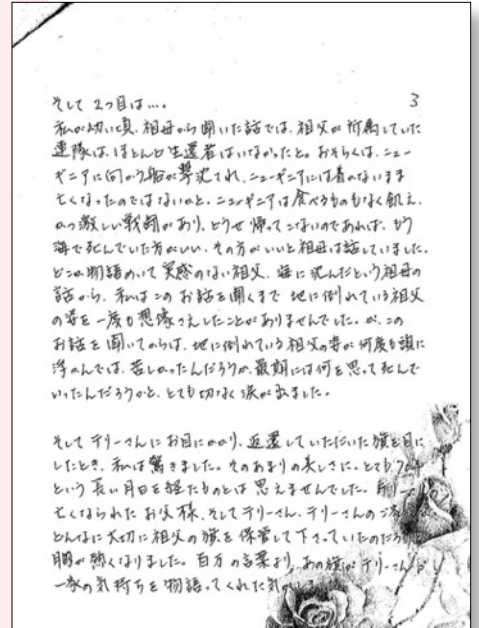 3
そして 2つ目は…。
私が幼い頃、祖母から聞いた話では、祖父が所属していた
連隊は、ほとんど生還者はいなかったと。おそらくは、ニュー
ギニアに向かう船が撃沈され、ニューギニアには着かないまま
亡くなったのではないかと、ニューギニアは食べるものもなく飢え、
かつ激しい戦闘があり、どうせ帰ってこないのであれば、もう
海で死んでいた方がいい、その方がいいと祖母は話していました。
どこか物語めいて実感のない祖父、海に沈んだという祖母の
話から、私はこのお話を聞くまで 地に倒れている祖父
の姿を一度も想像さえしたことがありませんでした。が、この
お話を聞いてからは、地に倒れている祖父の姿が何度も頭に
浮かんでは、苦しかったんだろうか、最期には何を思って死んで
いったんだろうかと、とても切なく涙が出ました。
そしてテリーさんにお目にかかり、返還していただいた旗を目に
したとき、私は驚きました。そのあまりの美しさに。とても70年
という長い月日を経たものとは思えませんでした。
亡くなられたお父様、そしてテリーさん、テリーさんのご
どんなに大切に祖父の旗を保管して下さっていたのだろう
胸が熱くなりました。百万の言葉より、あの旗がテリーさんご
一家の気持ちを物語ってくれた気が